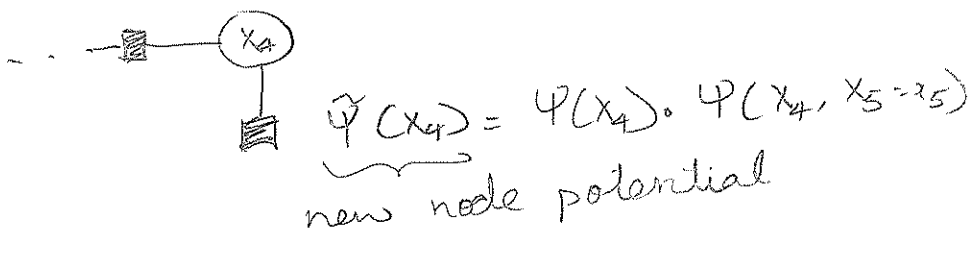 X₄
ψ̃(X₄) = ψ(X₄) · ψ(X₄, X₅=x₅)
new node potential